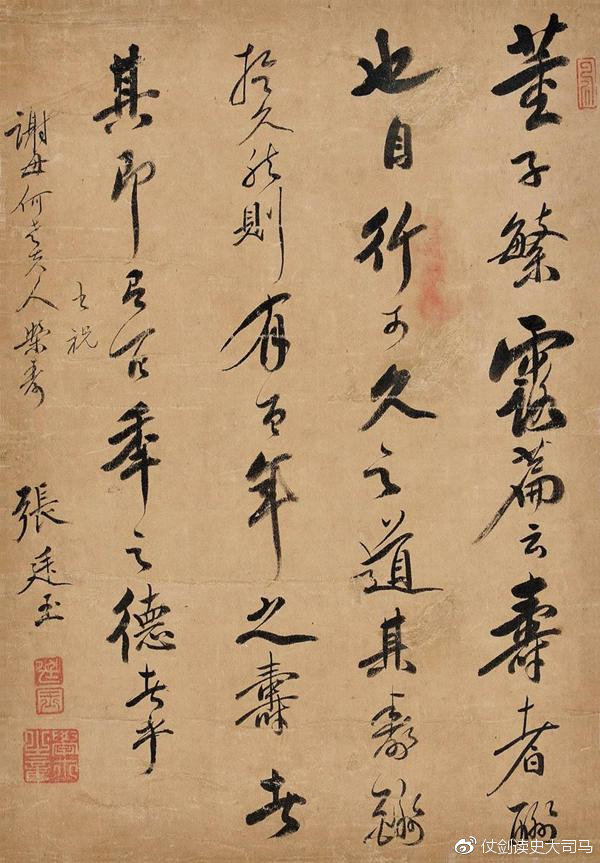 董子繁露篇云壽者酬
也自行可久之道其壽讎
於久然則有百年之壽者
其即有百年之德者乎
上祝
謝母何老夫人榮壽
張廷玉
@仗剑读史大司马